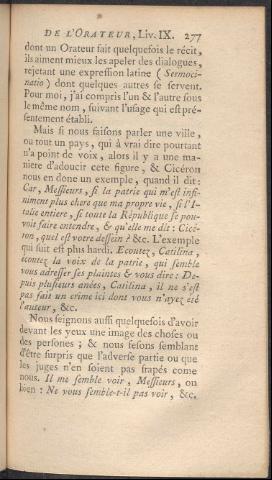 DE L'ORATEUR, LIV. IX. 277
dont un Orateur fait quelquefois le récit,
ils aiment mieux les apeler des dialogues,
rejetant une expression latine (Sermoci-
natio) dont quelques autres se servent.
Pour moi, j'ai compris l'un & l'autre sous
le même nom, suivant l'usage qui est pré-
sentement établi.
Mais si nous faisons parler une ville,
ou tout un pays, qui à vrai dire pourtant
n'a point de voix, alors il y a une ma-
nière d'adoucir cete figure, & Cicéron
nous en done un exemple, quand il dit:
Car, Messieurs, si la patrie qui m'est infi-
niment plus chere que ma propre vie, si l'I-
talie entiere, si toute la République se pou-
voit faire entendre, & qu'elle me dit: Cicé-
ron, quel est votre dessein? &c. L'exemple
qui suit est plus hardi. Ecoutez, Catilina,
écoutez la voix de la patrie, qui semble
vous adresser ses plaintes & vous dire: De-
puis plusieurs anées, Catilina, il ne s'est
pas fait un crime ici dont vous n'ayez été
l'auteur, &c.
Nous feignons aussi quelquefois d'avoir
devant les yeux une image des choses ou
des persones; & nous fesons semblant
d'être surpris que l'adverse partie ou que
les juges n'en soient pas frapés come
nous. Il me semble voir, Messieurs, ou
bien: Ne vous semble-t-il pas voir, &c.